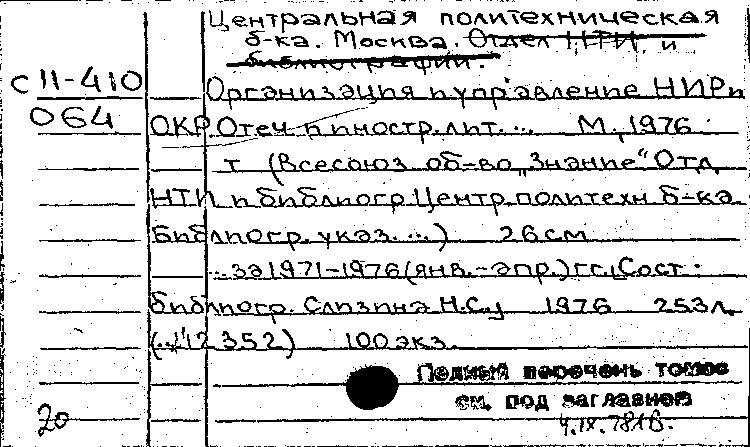 Центральная политехническая
б-ка. Москва. Отдел НТИ и
библиографии.
С11-410 Организация и управление НИР и
064 ОКР. Отеч. и иностр. лит. ... М., 1976
т (Всесоюз. об-во „Знание“ Отд.
НТИ и библиогр. Центр. политехн. б-ка.
Библиогр. указ. ...) 26см
...за 1971-1976 (янв.-апр.) гг. Сост.
библиогр. Слизина Н.С., 1976 253л.
(... 12352) 100 экз.
Полный перечень томов
см. под заглавием
20 4.IX.78